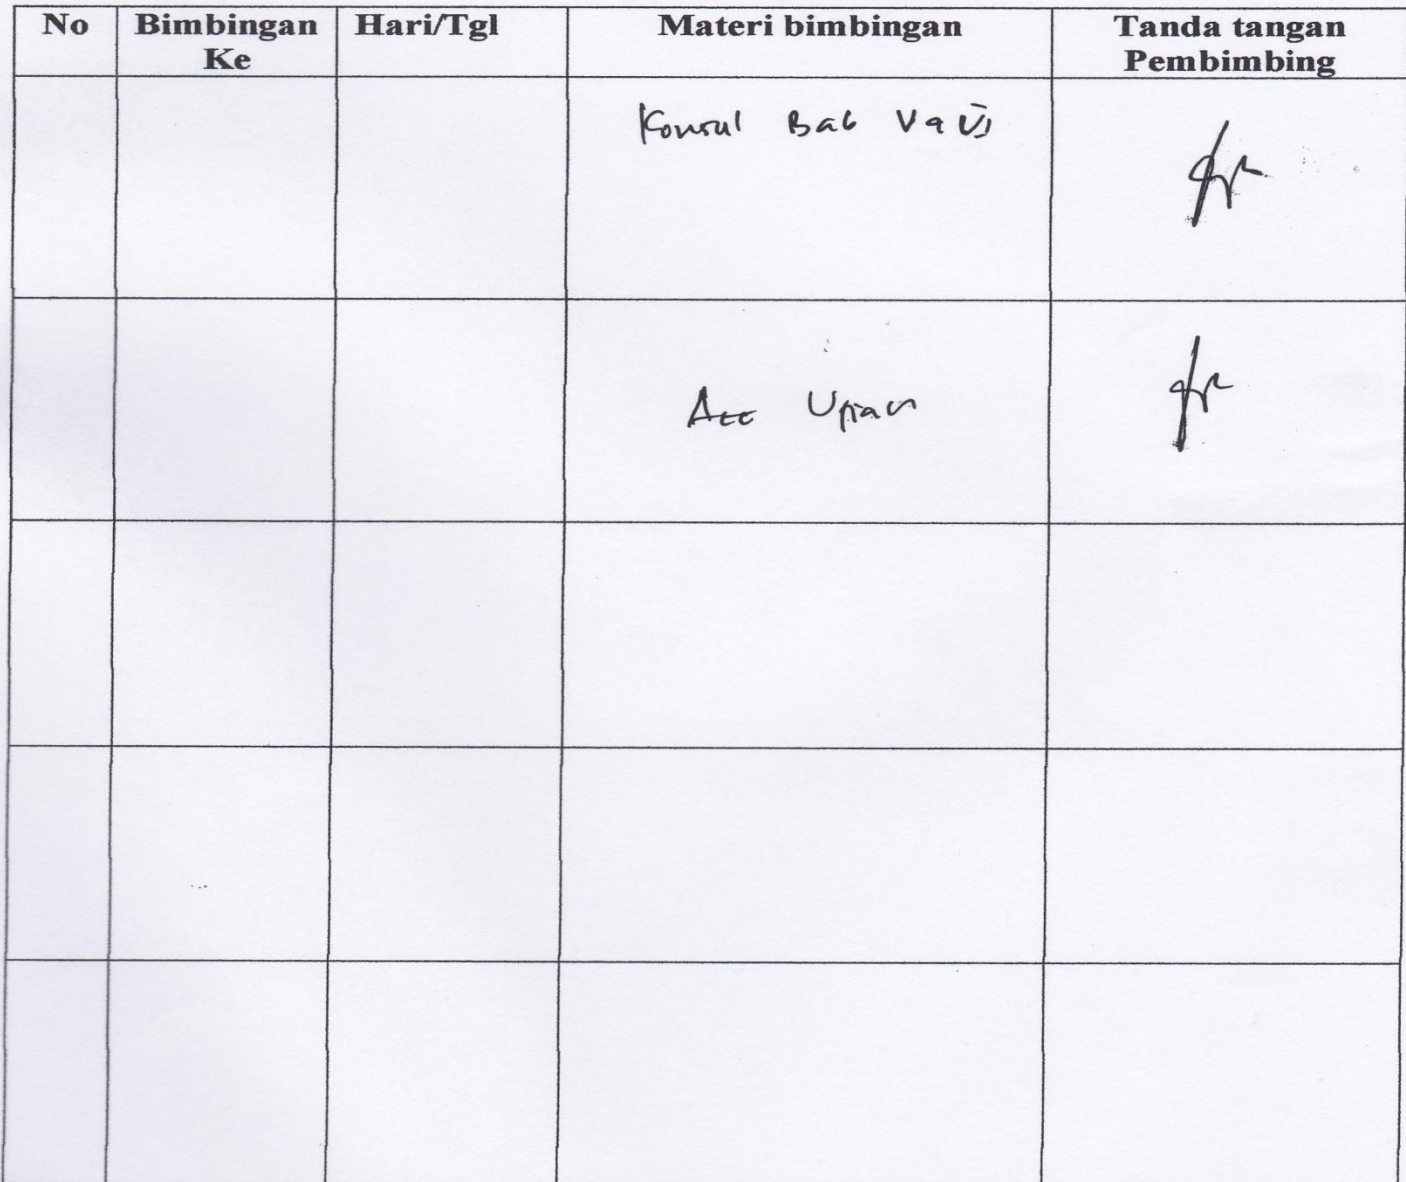 No Bimbingan Ke Hari/Tgl Materi bimbingan Tanda tangan Pembimbing
Konsul Bab V & VI
Acc Ujian